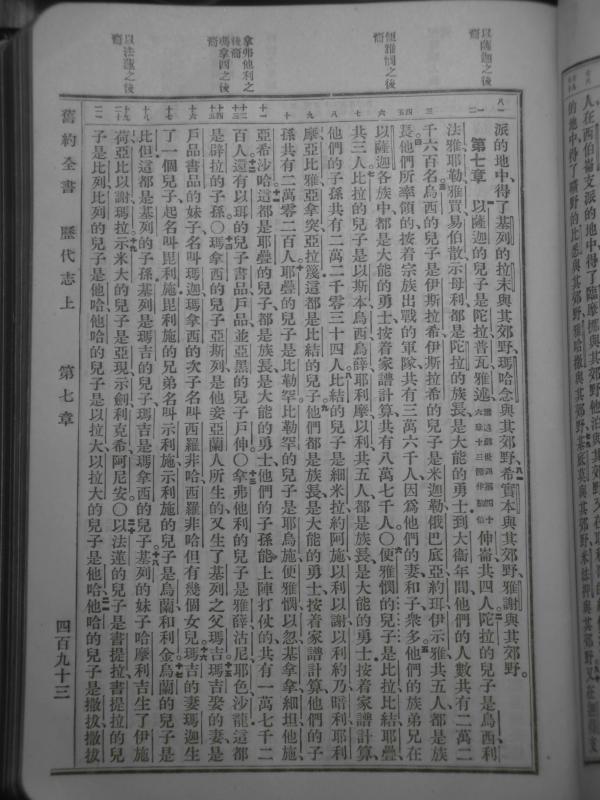 以薩迦之後裔
便雅憫之後裔
拿弗他利之後裔
瑪拿西之後裔
以法蓮之後裔
派的地中、得了基列的拉末與其郊野、瑪哈念與其郊野、希實本與其郊野、雅謝與其郊野。
第七章 以薩迦的兒子是陀拉普瓦雅述伸崙共四人陀拉的兒子是烏西利
法雅耶勒雅買易伯散示母利都是陀拉的族長是大能的勇士到大衞年間他們的人數共有二萬二
千六百名烏西的兒子是伊斯拉希伊斯拉希的兒子是米迦勒俄巴底亞約珥伊示雅共五人都是族
長他們所率領的按着宗族出戰的軍隊共有三萬六千人因爲他們的妻和子衆多他們的族弟兄在
以薩迦各族中都是大能的勇士按着家譜計算共有八萬七千人〇便雅憫的兒子是比拉比結耶疊
共三人比拉的兒子是以斯本烏西烏薛耶利摩以利共五人都是族長是大能的勇士按着家譜計算
他們的子孫共有二萬二千零三十四人比結的兒子是細米拉約阿施以利以謝以利約乃暗利耶利
摩亞比雅亞拿突亞拉篾這都是比結的兒子他們都是族長是大能的勇士按着家譜計算他們的子
孫共有二萬零二百人耶疊的兒子是比勒罕比勒罕的兒子是耶烏施便雅憫以忽基拿拿細坦他施
亞希沙哈這都是耶疊的兒子都是族長是大能的勇士他們的子孫能上陣打仗的共有一萬七千二
百人還有以珥的兒子書品戶品並亞黑的兒子戶伸〇拿弗他利的兒子是雅薛沽尼耶色沙龍這都
是辟拉的子孫〇瑪拿西的兒子亞斯列是他妾亞蘭人所生的又生了基列之父瑪吉瑪吉娶的妻是
戶品書品的妹子名叫瑪迦瑪拿西的次子名叫西羅非哈西羅非哈但有幾個女兒瑪吉的妻瑪迦生
了一個兒子起名叫毘利施毘利施的兄弟名叫示利施示利施的兒子是烏蘭和利金烏蘭的兒子是
比但這都是基列的子孫基列是瑪吉的兒子瑪吉是瑪拿西的兒子基列的妹子哈摩利吉生了伊施
荷亞比以謝瑪拉示米大的兒子是亞現示劍利克希阿尼安〇以法蓮的兒子是書提拉書提拉的兒
子是比列比列的兒子是他哈他哈的兒子是以拉大以拉大的兒子是他哈他哈的兒子是撒拔撒拔
舊約全書 歷代志上 第七章 四百九十三